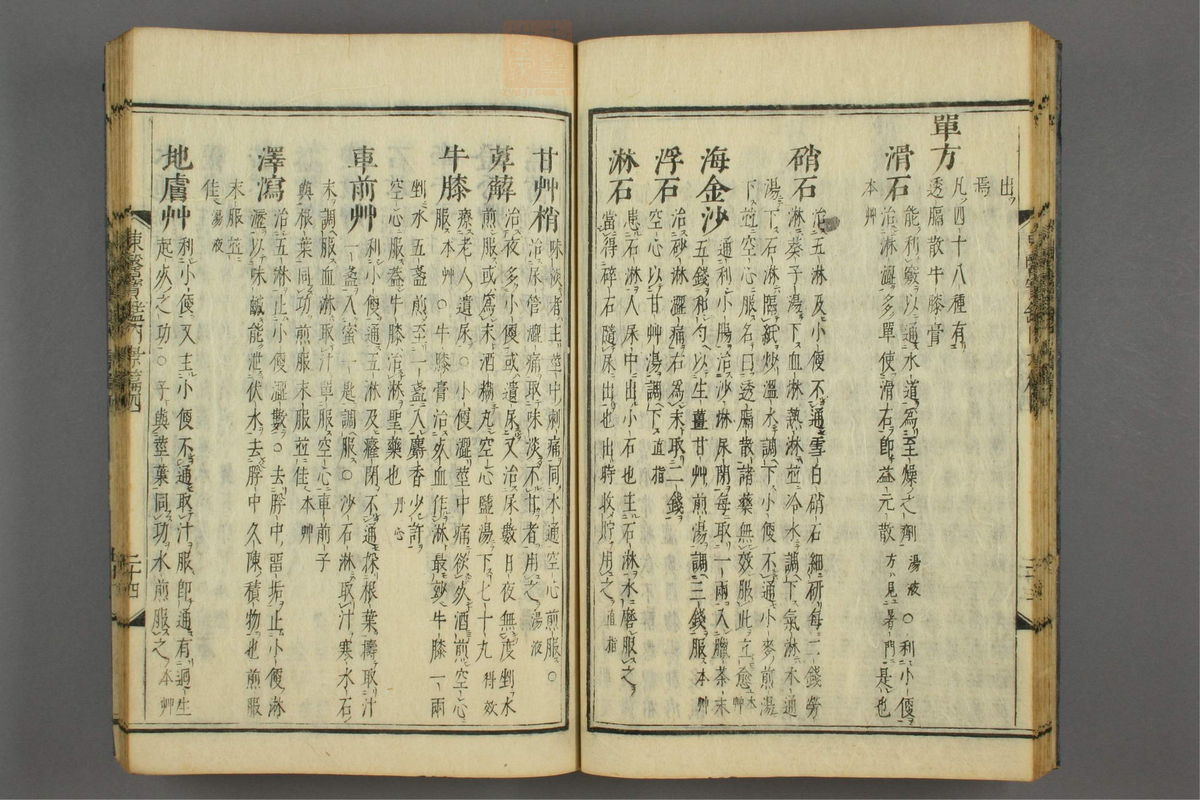 出
焉
單方
凡四十八種有
透膈散牛膝膏
滑石
能利竅以通水道爲至燥之劑湯液○利小便
治淋澁多單使滑石即益元散方見暑門是也
本艸
硝石
治五淋及小便不通雪白硝石細研每二錢勞
淋葵子湯下血淋熱淋並冷水調下氣淋木通
湯下石淋隔紙炒溫水調下小便不通小麥煎湯
下並空心服名曰透膈散諸藥無效服此立愈本艸
海金沙
通利小腸治沙淋尿閉每取一兩入臘茶末
五錢和勻以生薑甘艸煎湯調三錢服本艸
浮石
治砂淋澁痛右爲末取二錢
空心以甘艸湯調下直指
淋石
患石淋人尿中出小石也主石淋水磨服之
當得碎石隨尿出也出時收貯用之直指
甘艸梢
味淡者主莖中刺痛同木通空心煎服○
治尿管澁痛取味淡不甘者用之湯液
萆薢
治夜多小便或遺尿又治尿數日夜無度剉水
煎服或爲末酒糊丸空心鹽湯下七十丸得效
牛膝
療老人遺尿○小便澁莖中痛欲死酒煎空心
服本艸○牛膝膏治死血作淋最妙牛膝一兩
剉水五盞煎至一盞入麝香少許
空心服盖牛膝治淋聖藥也丹心
車前艸
利小便通五淋及癃閉不通採根葉擣取汁
一盞入蜜一匙調服○沙石淋取汁寒水石
末調服血淋取汁單服空心車前子
與根葉同功煎服末服並佳本艸
澤瀉
治五淋止小便澁數○去脬中畱垢止小便淋
瀝以味鹹能泄伏水去脬中久陳積物也煎服
末服並
佳湯液
地膚艸
利小便又主小便不通取汁服即通有過生
起死之功○子與莖葉同功水煎服之本艸
東醫寶鑑內景篇四
二十四